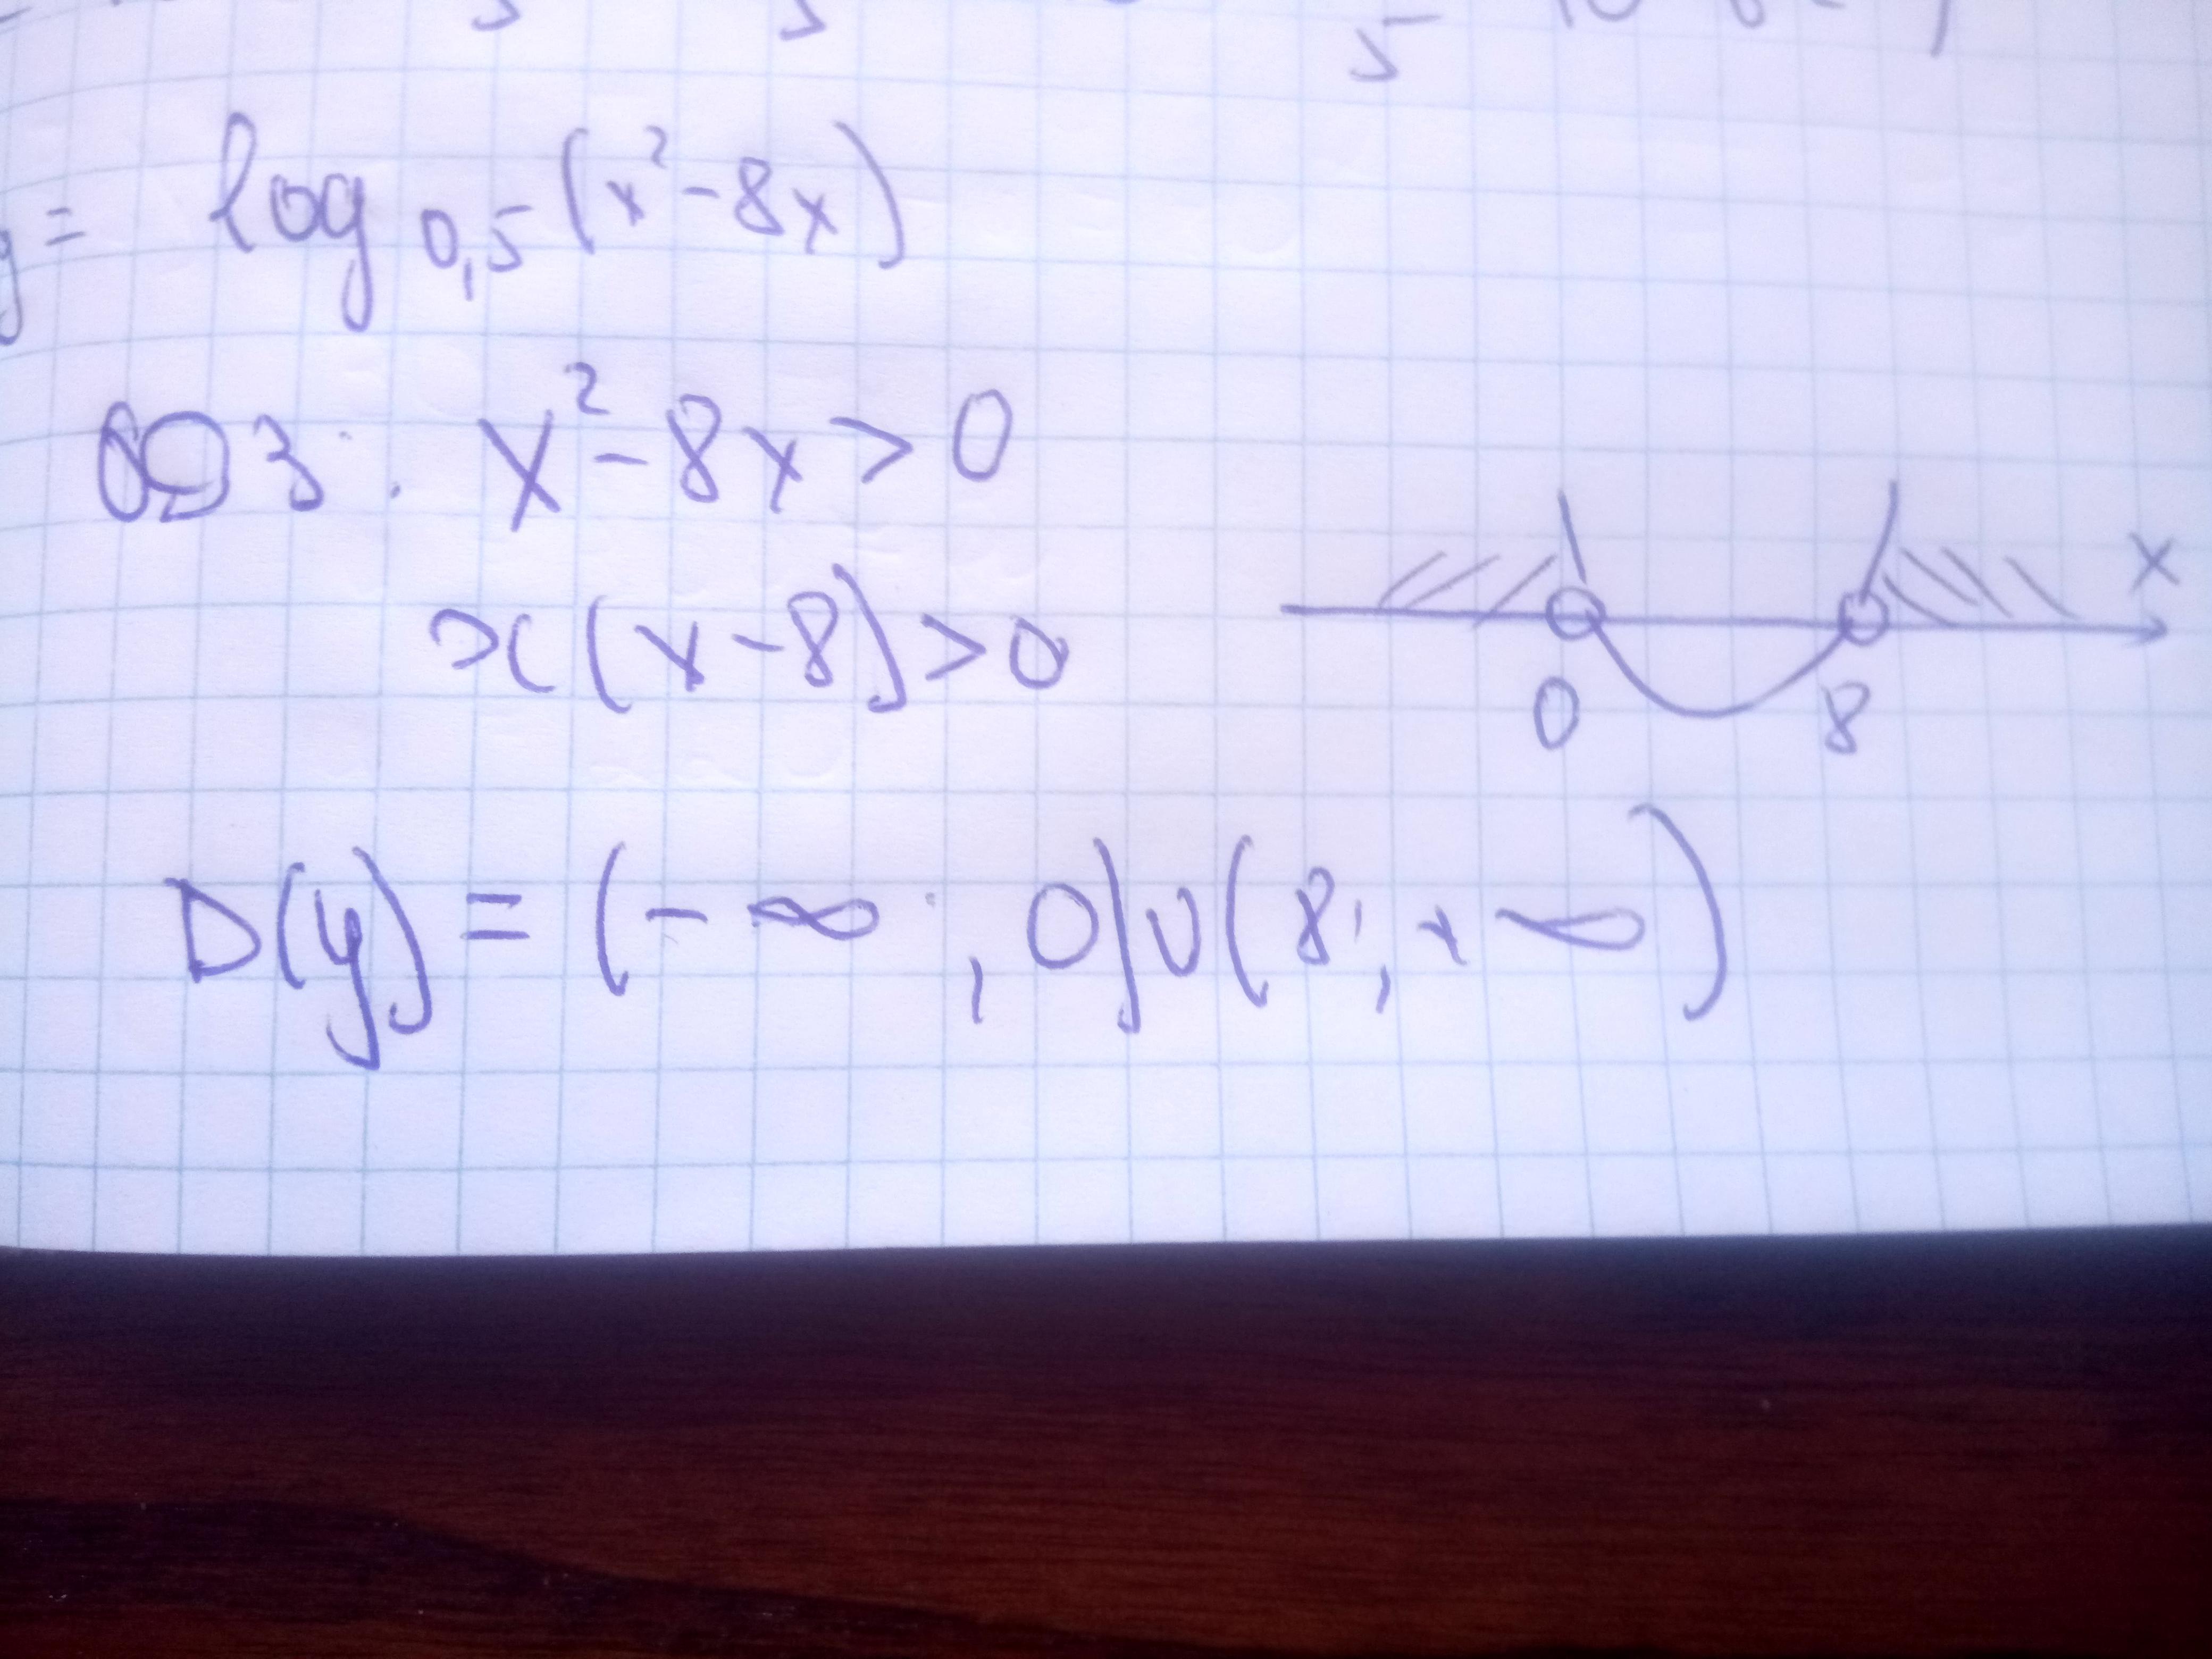 y = log 0,5 (x² - 8x)
ОДЗ: x² - 8x > 0
x(x - 8) > 0
x
0 8
D(y) = (-∞; 0)∪(8; +∞)